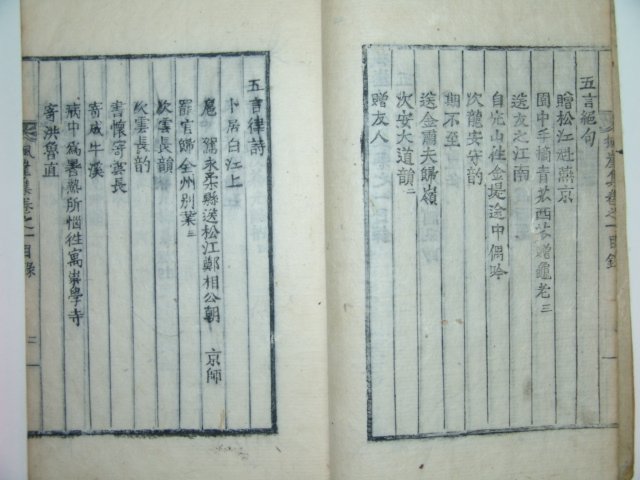 五言絶句
贈松江赴燕京
園中手摘青苽西苽贈龜老 三
送友之江南
自完山往金堤途中偶吟
次龍安守韵
期不至
送金甫夫歸嶺
次安大道韻 二
贈友人
集卷之一目錄 一
五言律詩
卜居白江上
扈 駕永柔縣送松江鄭相公朝 京師
罷官歸全州別業 三
次雲長韻
次雲長韵
書懷寄雲長
寄成牛溪
病中爲暑熱所惱往寓崇學寺
寄洪魯直
集卷之一目錄 二